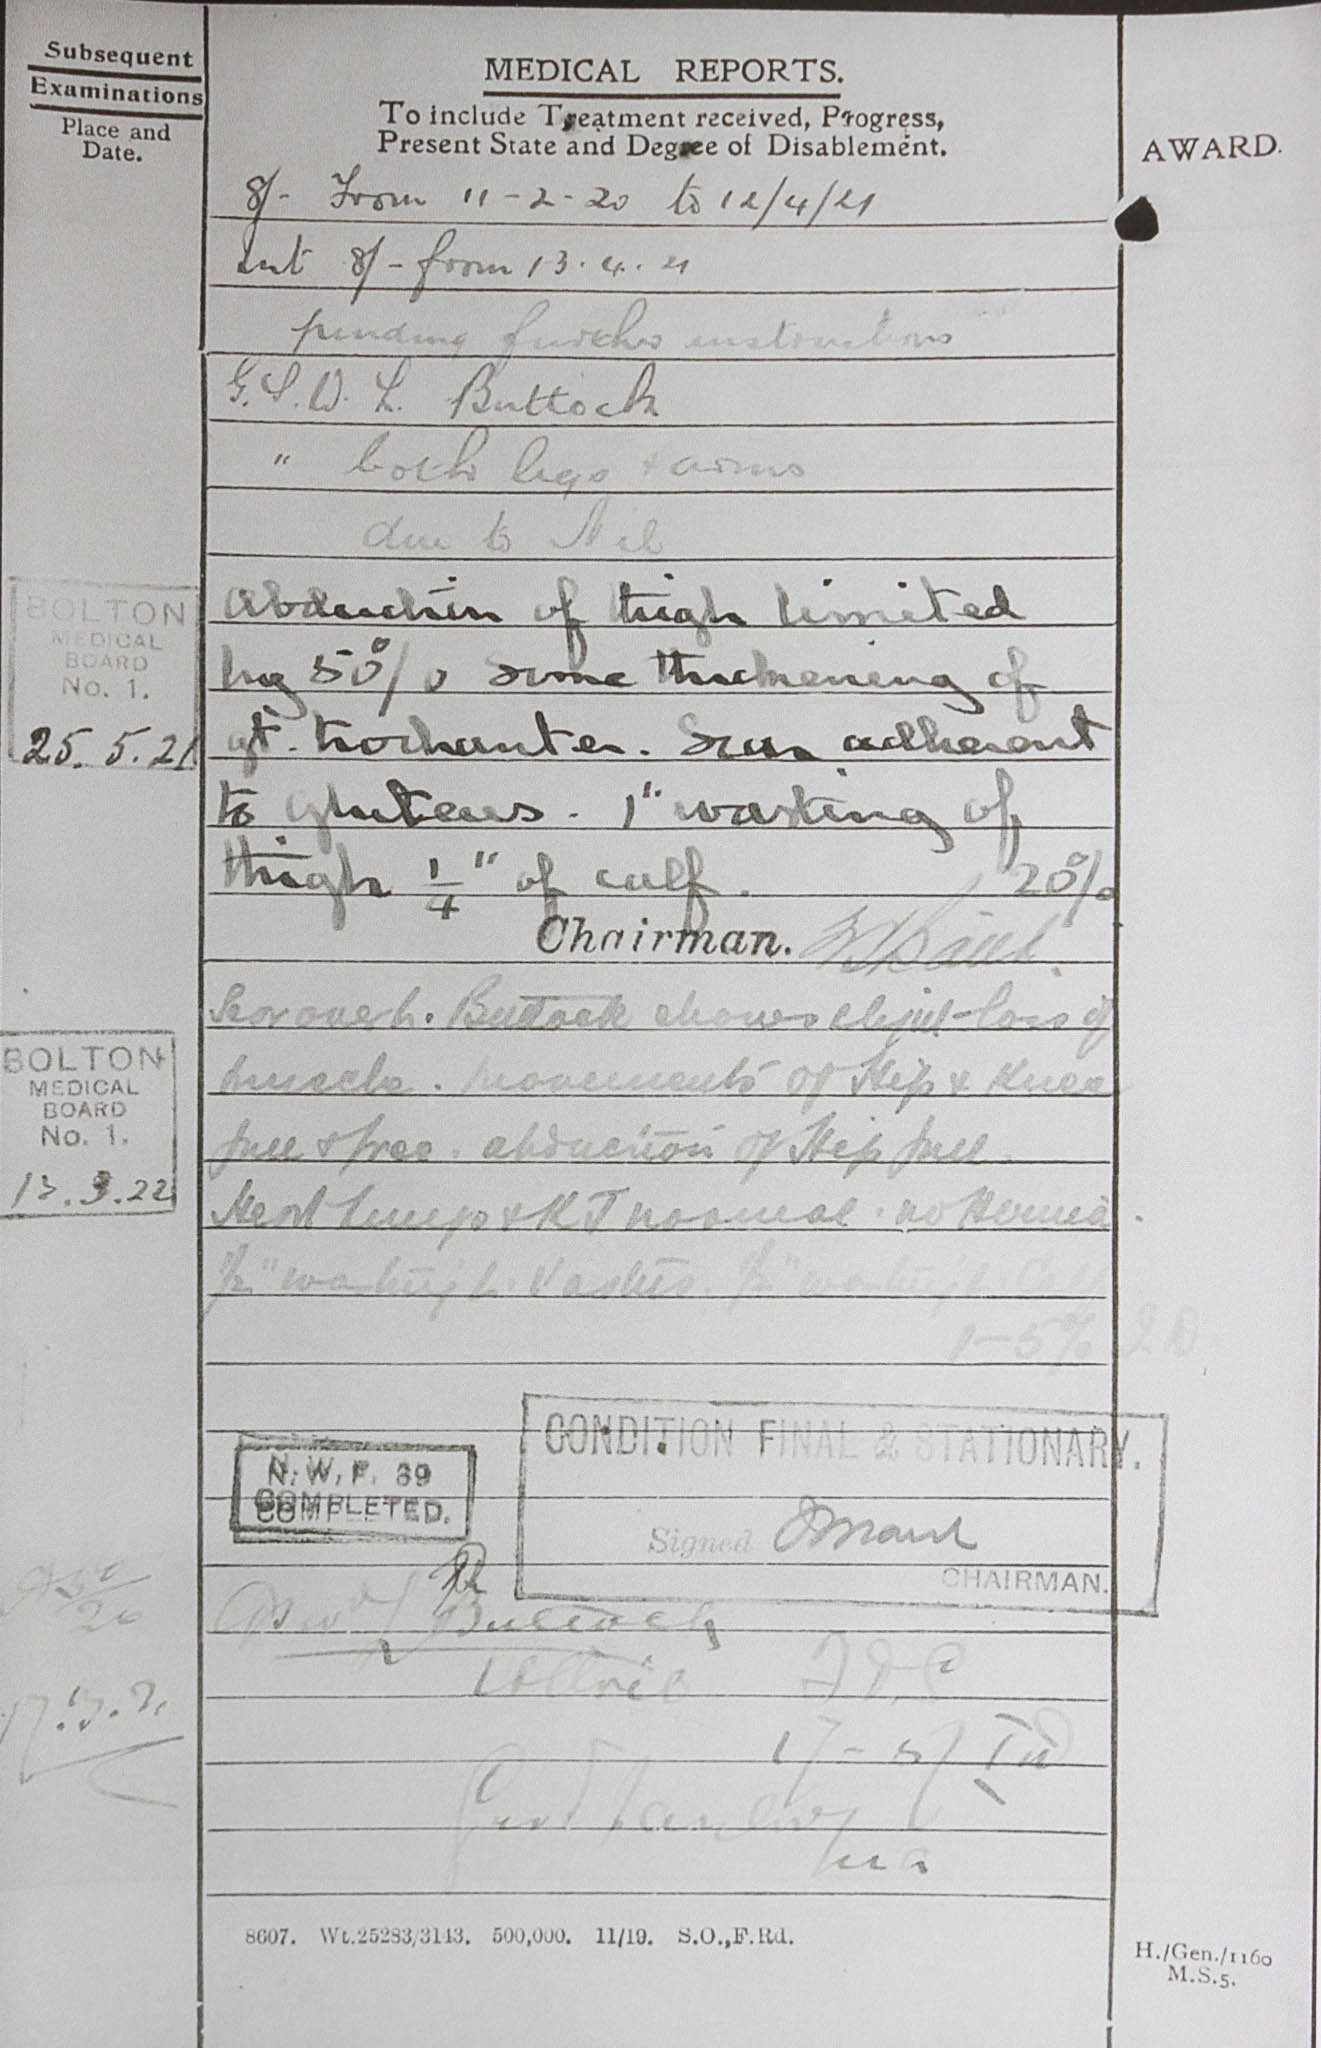 Subsequent
Examinations
Place and
Date.
MEDICAL REPORTS.
To include Treatment received, Progress,
Present State and Degree of Disablement.
AWARD.
8/- From 11-2-20 to 12/4/21
Int 8/- from 13.4.21
pending further instructions
G.S.W. L. Buttock
" both legs & arms
due to Nil
BOLTON
MEDICAL
BOARD
No. 1.
25.5.21
Abduction of thigh limited
by 50% some thickening of
gt. trochanter. Scar adherent
to gluteus. 1" wasting of
thigh 1/4" of calf. 20%
Chairman.
BOLTON
MEDICAL
BOARD
No. 1.
13.3.22
Scar over L. Buttock shows slight loss of
muscle. Movements of Hip & Knee
full & free. abduction of Hip full.
Heart Lungs & KJ normal. no Hernia.
1/2" wasting L. Vastus. 1/2" wasting L. Calf
1-5%
CONDITION FINAL & STATIONARY.
Signed
CHAIRMAN.
N.W.F. 39
COMPLETED.
Buttock
17.3.2
8607. Wt.25283/3143. 500,000. 11/19. S.O.,F.Rd.
H./Gen./1160
M.S.5.